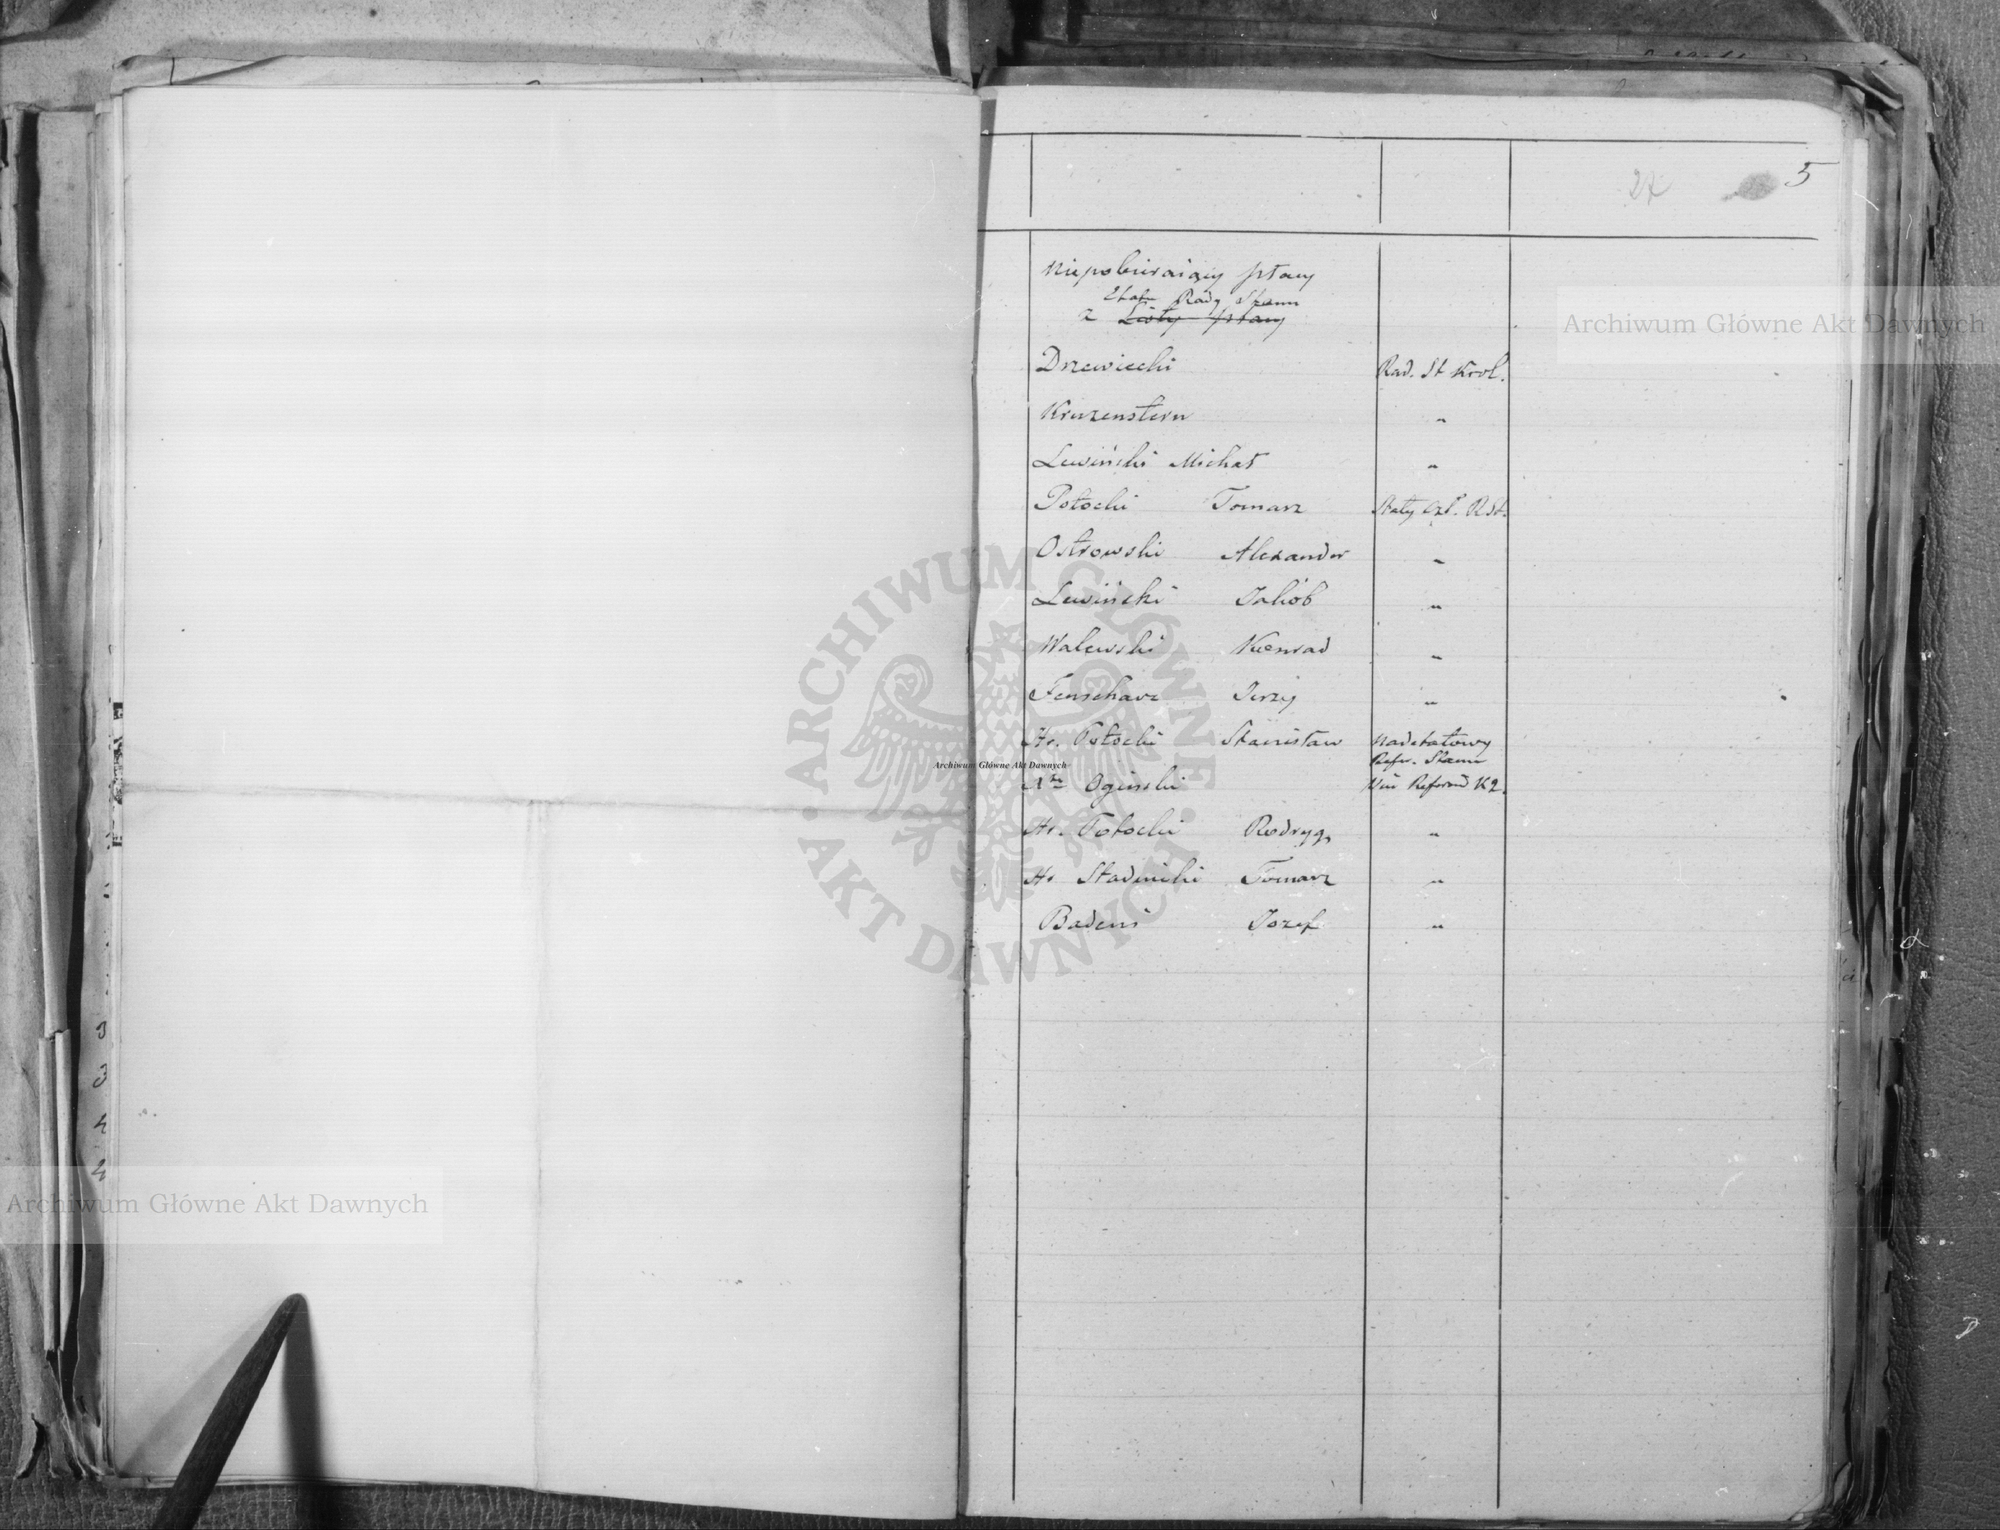 5
27
Niepobieraiący płacy
Etatu Rady Stanu
z Listy płacy
Drzewiecki Rad. St Krol.
Kruzenstern "
Lewiński Michał "
Potocki Tomasz Stały Czł. R St.
Ostrowski Alexander "
Lewiński Jakób "
Walewski Konrad "
Fenschave Jerzy "
Hr. Potocki Stanisław Nadetatowy
Refer. Stanu
Oginski
Hr. Potocki "
Hr Stadnicki Tomasz "
Badeni Jozef "
Archiwum Główne Akt Dawnych
Archiwum Główne Akt Dawnych
Archiwum Główne Akt Dawnych
ARCHIWUM GŁÓWNE · AKT DAWNYCH ·